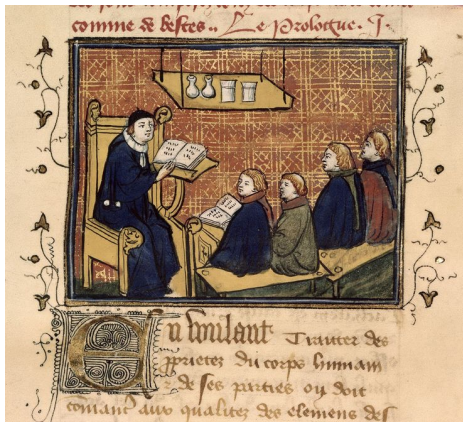 comme de bestes.. Le Prologue. I.
En voulant Traiter des
pprietez du corps humain
de ses parties on doit
aux qualitez des elemens des